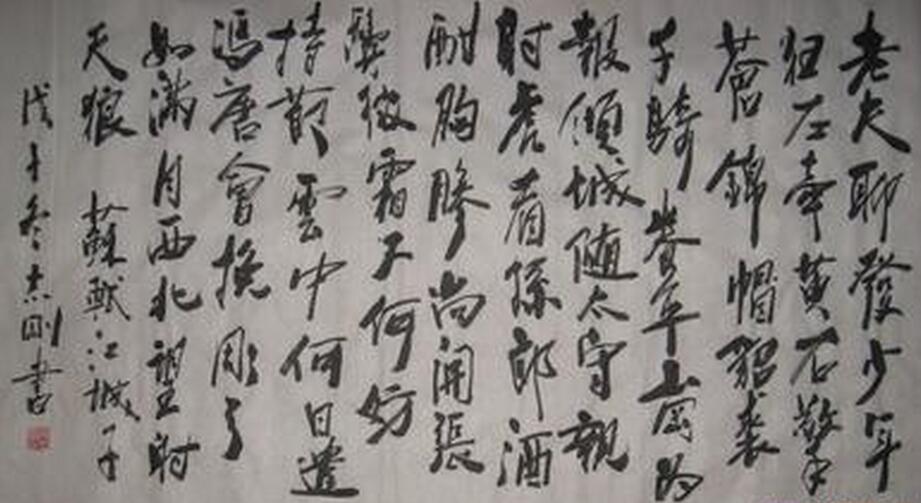 老夫聊發少年
狂左牽黃右擎
蒼錦帽貂裘
千騎卷平崗為
報傾城隨太守親
射虎看孫郎酒
酣胸膽尚開張
鬢微霜又何妨
持節雲中何日遣
馮唐會挽彫弓
如滿月西北望射
天狼 蘇軾江城子
戊子冬志剛書